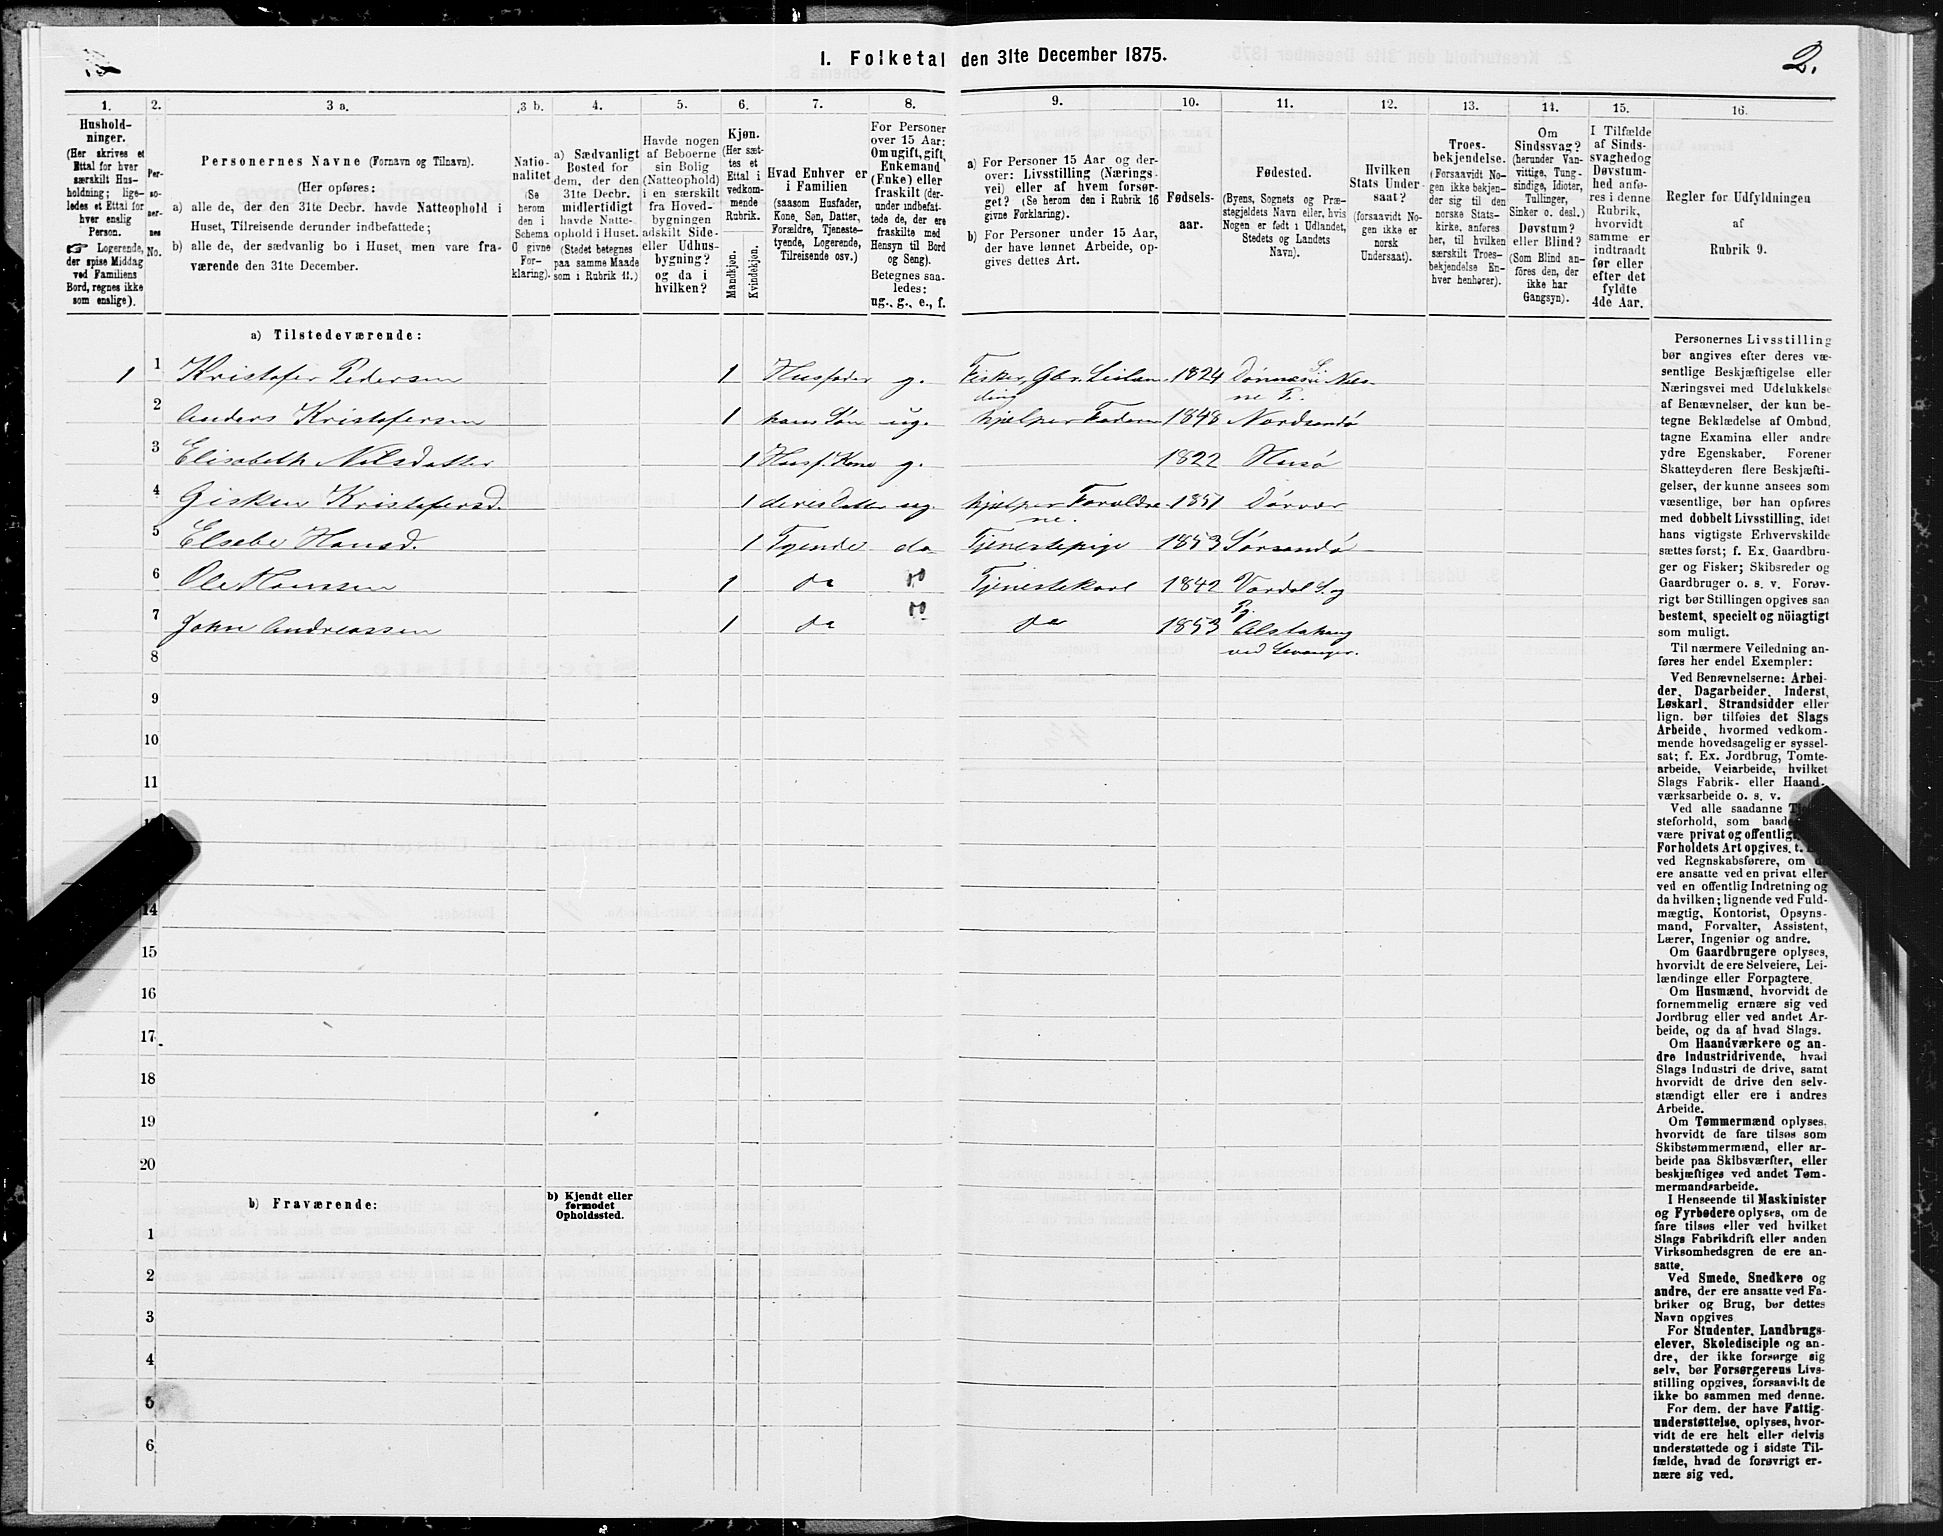 1. Folketal den 31te December 1875.
2.
1.
2.
3 a.
3 b.
4.
5.
6.
7.
8.
9.
10.
11.
12.
13.
14.
15.
16.
Hushold-
ninger.
(Her skrives et
Ettal for hver
særskilt Hus-
holdning; lige-
ledes et Ettal for
hver enslig
Person.
☞ Logerende,
der spise Middag
ved Familiens
Bord, regnes ikke
som enslige).
Per-
so-
ner-
nes
No.
Personernes Navne (Fornavn og Tilnavn).
(Her opføres:
a) alle de, der den 31te Decbr. havde Natteophold i
Huset, Tilreisende derunder indbefattede;
b) alle de, der sædvanlig bo i Huset, men vare fra-
værende den 31te December.
Natio-
nalitet
(Se
herom
den i
Schema
O givne
For-
klaring).
a) Sædvanligt
Bosted for
dem, der den
31te Decbr.
midlertidigt
havde Natte-
ophold i Huset.
(Stedet betegnes
paa samme Maade
som i Rubrik 11.)
Havde nogen
af Beboerne
sin Bolig
(Natteophold)
i en særskilt
fra Hoved-
bygningen
adskilt Side-
eller Udhus-
bygning?
og da i
hvilken?
Kjøn.
(Her sæt-
tes et
Ettal i
vedkom-
mende
Rubrik.
Mandkjøn.
Kvindekjøn.
Hvad Enhver er
i Familien
(saasom Husfader,
Kone, Søn, Datter,
Forældre, Tjeneste-
tyende, Logerende,
Tilreisende osv.)
For Personer
over 15 Aar:
Om ugift, gift,
Enkemand
(Enke) eller
fraskilt (der-
under indbefat-
tede de, der ere
fraskilte med
Hensyn til Bord
og Seng).
Betegnes saa-
ledes:
ug., g., e., f.
a) For Personer 15 Aar og der-
over: Livsstilling (Nærings-
vei) eller af hvem forsør-
get? (Se herom den i Rubrik 16
givne Forklaring).
b) For Personer under 15 Aar,
der have lønnet Arbeide, op-
gives dettes Art.
Fødsels-
aar.
Fødested.
(Byens, Sognets og Præ-
stegjeldets Navn eller, hvis
Nogen er født i Udlandet,
Stedets og Landets
Navn).
Hvilken
Stats Under-
saat?
(forsaavidt No-
gen ikke er
norsk
Undersaat).
Troes-
bekjendelse.
(Forsaavidt No-
gen ikke bekjen-
der sig til den
norske Stats-
kirke, anføres
her, til hvilken
særskilt Troes-
bekjendelse En-
hver henhører).
Om
Sindssvag?
(herunder Van-
vittige, Tung-
sindige, Idioter,
Tullinger,
Sinker o. desl.)
Døvstum?
eller Blind?
(Som Blind an-
føres den, der
ikke har
Gangsyn).
I Tilfælde
af Sinds-
svaghed og
Døvstum-
hed anfø-
res i denne
Rubrik,
hvorvidt
samme er
indtraadt
før eller
efter det
fyldte
4de Aar.
Regler for Udfyldningen
af
Rubrik 9.
a) Tilstedeværende:
1 1 Kristofer Pedersen 1 Husfader g. Fisker, Gbr. Leilæn- 1824 Dønnæs S. i Næs-
ding ne P.
2 Anders Kristofersen 1 hans Søn ug. hjelper Faderen 1848 Nordsandø
3 Elisabeth Nilsdatter 1 Husf. Kone g. 1822 Husø
4 Gisken Kristofersd. 1 deres Datter ug. hjelper Foreldre- 1851 Dørvær
ne.
5 Elsebe Hansd. 1 Tyende do Tjenestepige 1853 Sørsandø
6 Ole Hanssen 1 do do Tjenestekarl 1842 Værdal S. og
Pg.
7 John Andreassen 1 do do do 1853 Alstahaug
ved Levanger.
8
9
10
11
14
15
16
17
18
19
20
b) Fraværende:
b) Kjendt eller
formodet
Opholdssted.
1
2
3
4
5
6
Personernes Livsstilling
bør angives efter deres væ-
sentlige Beskjæftigelse eller
Næringsvei med Udelukkelse
af Benævnelser, der kun be-
tegne Beklædelse af Ombud,
tagne Examina eller andre
ydre Egenskaber. Forener
Skatteyderen flere Beskjæfti-
gelser, der kunne ansees som
væsentlige, bør han opføres
med dobbelt Livsstilling, idet
hans vigtigste Erhvervskilde
sættes først; f. Ex. Gaardbru-
ger og Fisker; Skibsreder og
Gaardbruger o. s. v. Forøv-
rigt bør Stillingen opgives saa
bestemt, specielt og nöiagtigt
som muligt.
Til nærmere Veiledning an-
føres her endel Exempler:
Ved Benævnelserne: Arbei-
der, Dagarbeider, Inderst,
Løskarl, Strandsidder eller
lign. bør tilføies det Slags
Arbeide, hvormed vedkom-
mende hovedsagelig er syssel-
sat; f. Ex. Jordbrug, Tomte-
arbeide, Veiarbeide, hvilket
Slags Fabrik- eller Haand-
værksarbeide o. s. v.
Ved alle saadanne
steforhold, som
være privat og offentlig
Forholdets Art opgives.
ved Regnskabsførere, om
ere ansatte ved en privat eller
ved en offentlig Indretning og
da hvilken; lignende ved Fuld-
mægtig, Kontorist, Opsyns-
mand, Forvalter, Assistent,
Lærer, Ingeniør og andre.
Om Gaardbrugere oplyses,
hvorvidt de ere Selveiere, Lei-
lændinge eller Forpagtere.
Om Husmænd, hvorvidt de
fornemmelig ernære sig ved
Jordbrug eller ved andet Ar-
beide, og da af hvad Slags.
Om Haandværkere og an-
dre Industridrivende, hvad
Slags Industri de drive, samt
hvorvidt de drive den selv-
stændigt eller ere i andres
Arbeide.
Om Tømmermænd oplyses,
hvorvidt de fare tilsøs som
Skibstømmermænd, eller ar-
beide paa Skibsværfter, eller
beskjæftiges ved andet Tøm-
mermandsarbeide.
I Henseende til Maskinister
og Fyrbødere oplyses, om de
fare tilsøs eller ved hvilket
Slags Fabrikdrift eller anden
Virksomhedsgren de ere an-
satte.
Ved Smede, Snedkere og
andre, der ere ansatte ved Fa-
briker og Brug, bør dettes
Navn opgives
For Studenter, Landbrugs-
elever, Skoledisciple og an-
dre, der ikke forsørge sig
selv, bør Forsørgerens Livs-
stilling opgives, forsaavidt de
ikke bo sammen med denne.
For dem, der have Fattig-
understøttelse, oplyses, hvor-
vidt de ere helt eller delvis
understøttede og i sidste Til-
fælde, hvad de forøvrigt er-
nære sig ved.